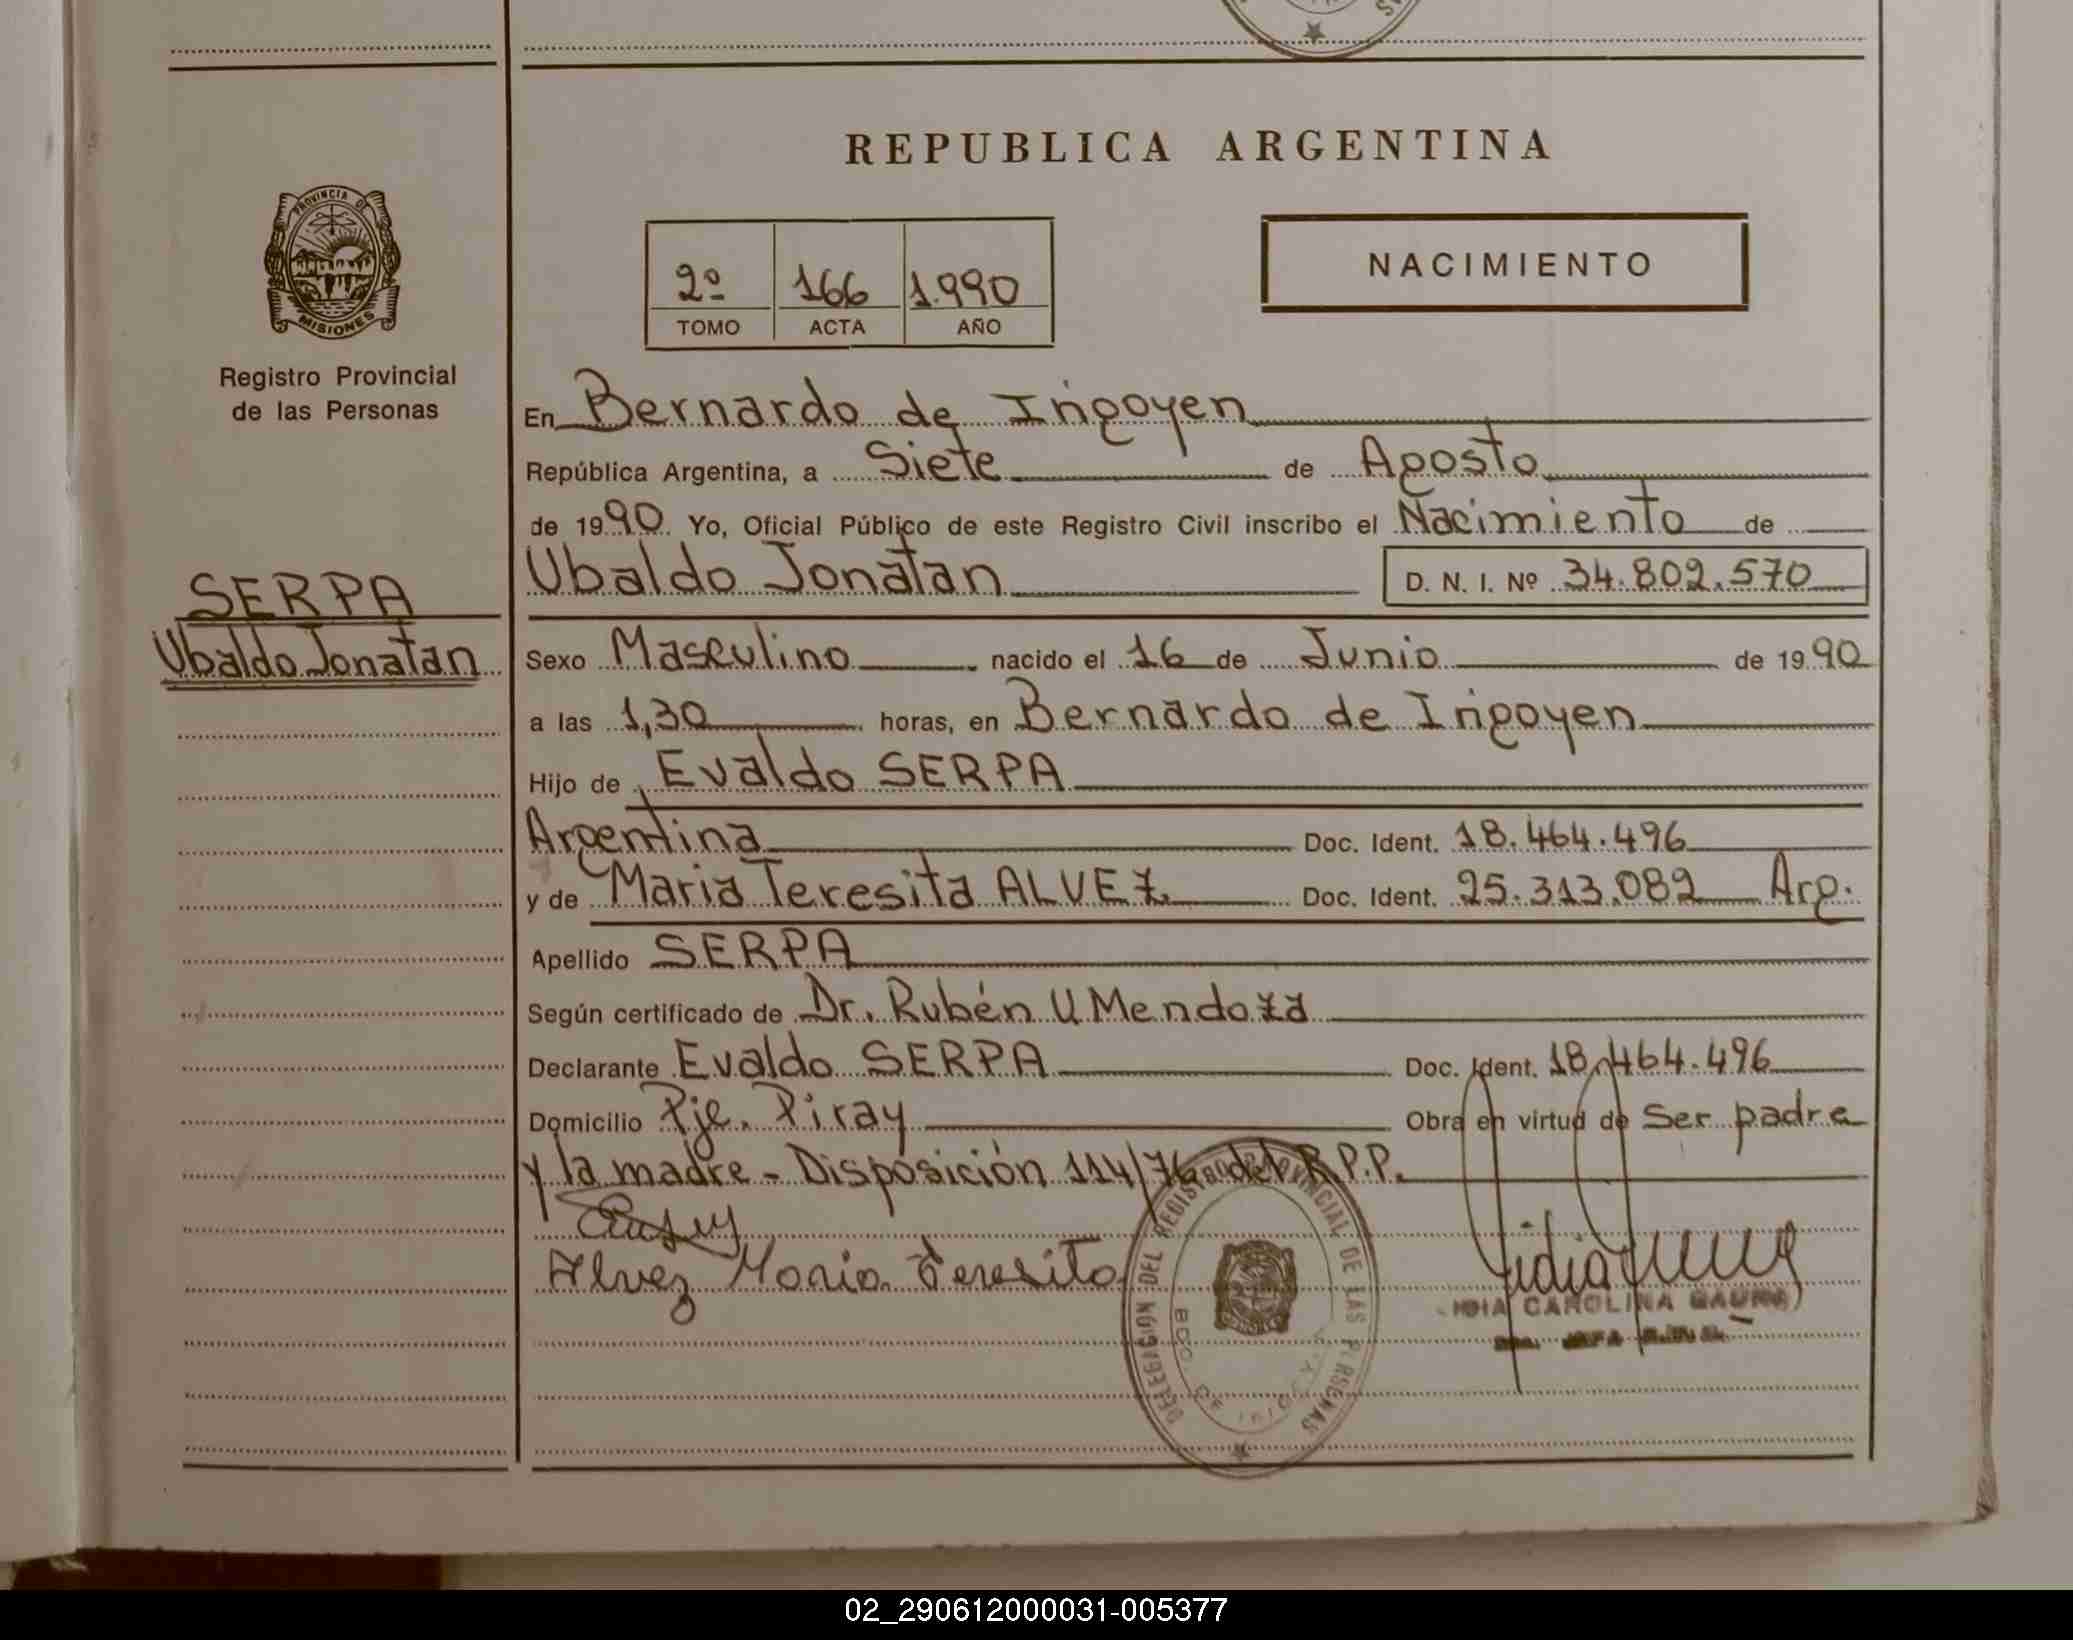 REPUBLICA ARGENTINA
PROVINCIA DE
MISIONES
Registro Provincial
de las Personas
2º 166 1.990
TOMO ACTA AÑO
NACIMIENTO
SERPA
Ubaldo Jonatan
En Bernardo de Irigoyen
República Argentina, a Siete de Agosto
de 1990 Yo, Oficial Público de este Registro Civil inscribo el Nacimiento de
Ubaldo Jonatan D. N. I. Nº 34.802.570
Sexo Masculino nacido el 16 de Junio de 1990
a las 1,30 horas, en Bernardo de Irigoyen
Hijo de Evaldo SERPA
Argentina Doc. Ident. 18.464.496
y de Maria Teresita ALVEZ Doc. Ident. 25.313.082 Arg.
Apellido SERPA
Según certificado de Dr. Rubén U Mendoza
Declarante Evaldo SERPA Doc. Ident. 18.464.496
Domicilio Pje. Piray Obra en virtud de Ser padre
y la madre - Disposición 114/76 del R.P.P.
Alvez Maria Teresita
DELEGACIÓN DEL REGISTRO PROVINCIAL DE LAS PERSONAS
BDO. DE IRIGOYEN
CAROLINA
02_290612000031-005377